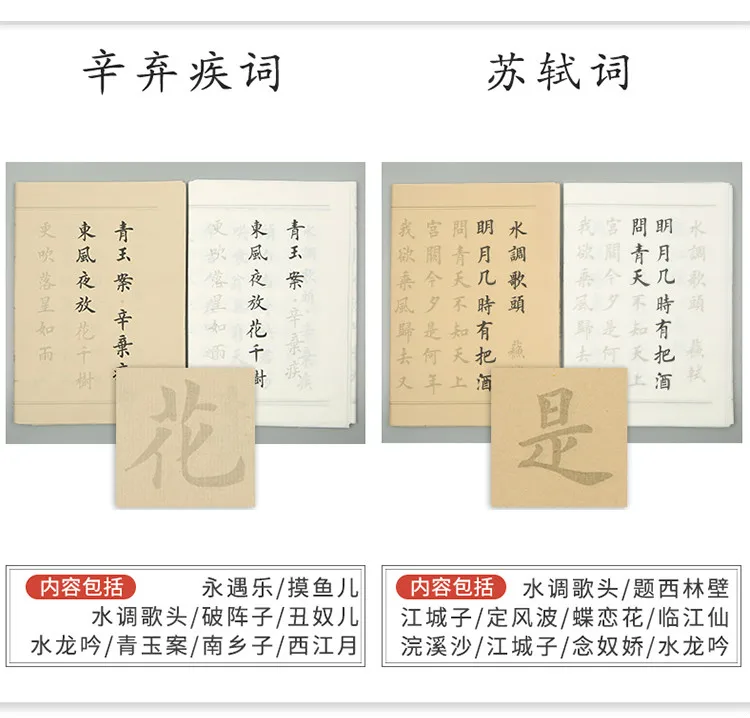 辛弃疾词
青玉案·辛棄
東風夜放花千樹
更吹落星如雨
青玉案·辛棄疾
東風夜放花千樹
更吹落星如雨
花
内容包括
永遇乐/摸鱼儿
水调歌头/破阵子/丑奴儿
水龙吟/青玉案/南乡子/西江月
苏轼词
水調歌頭 蘇
明月几時有把酒
問青天不知天上
宮闕今夕是何年
我欲乘風歸去又
水調歌頭 蘇軾
明月几時有把酒
問青天不知天上
宮闕今夕是何年
我欲乘風歸去又
是
内容包括
水调歌头/题西林壁
江城子/定风波/蝶恋花/临江仙
浣溪沙/江城子/念奴娇/水龙吟